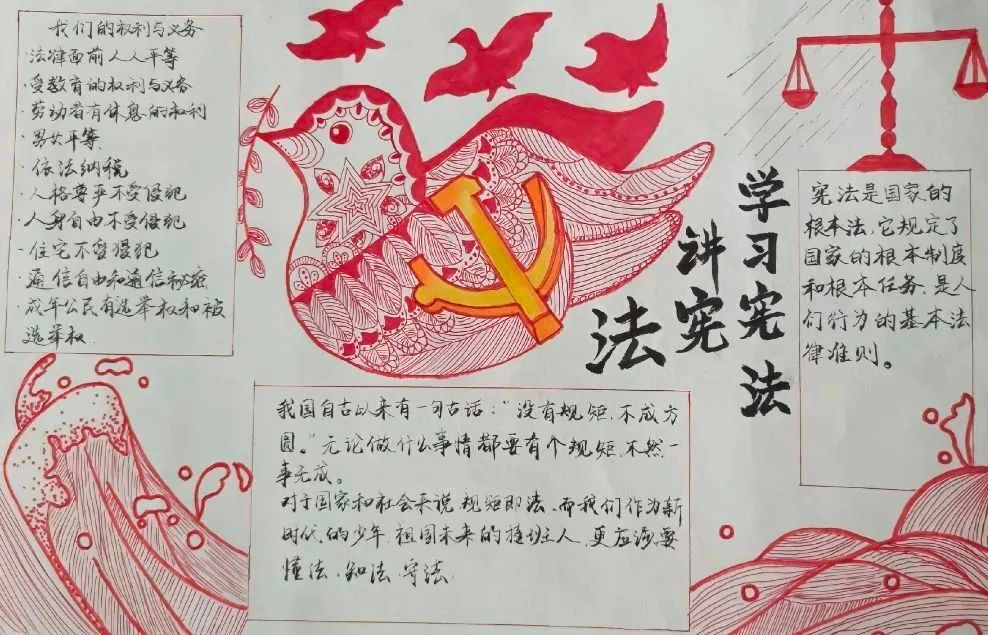 我们的权利与义务
·法律面前人人平等
·受教育的权利与义务
·劳动者有休息的权利
·男女平等
·依法纳税
·人格尊严不受侵犯
·人身自由不受侵犯
·住宅不受侵犯
·通信自由和通信秘密
·成年公民有选举权和被
选举权.
学习宪法
讲宪
法
宪法是国家的
根本法,它规定了
国家的根本制度
和根本任务,是人
们行为的基本法
律准则。
我国自古以来有一句古话:“没有规矩,不成方
圆。”无论做什么事情都要有个规矩,不然一
事无成。
对于国家和社会来说,规矩即法,而我们作为新
时代的少年,祖国未来的接班人,更应该要
懂法、知法、守法.